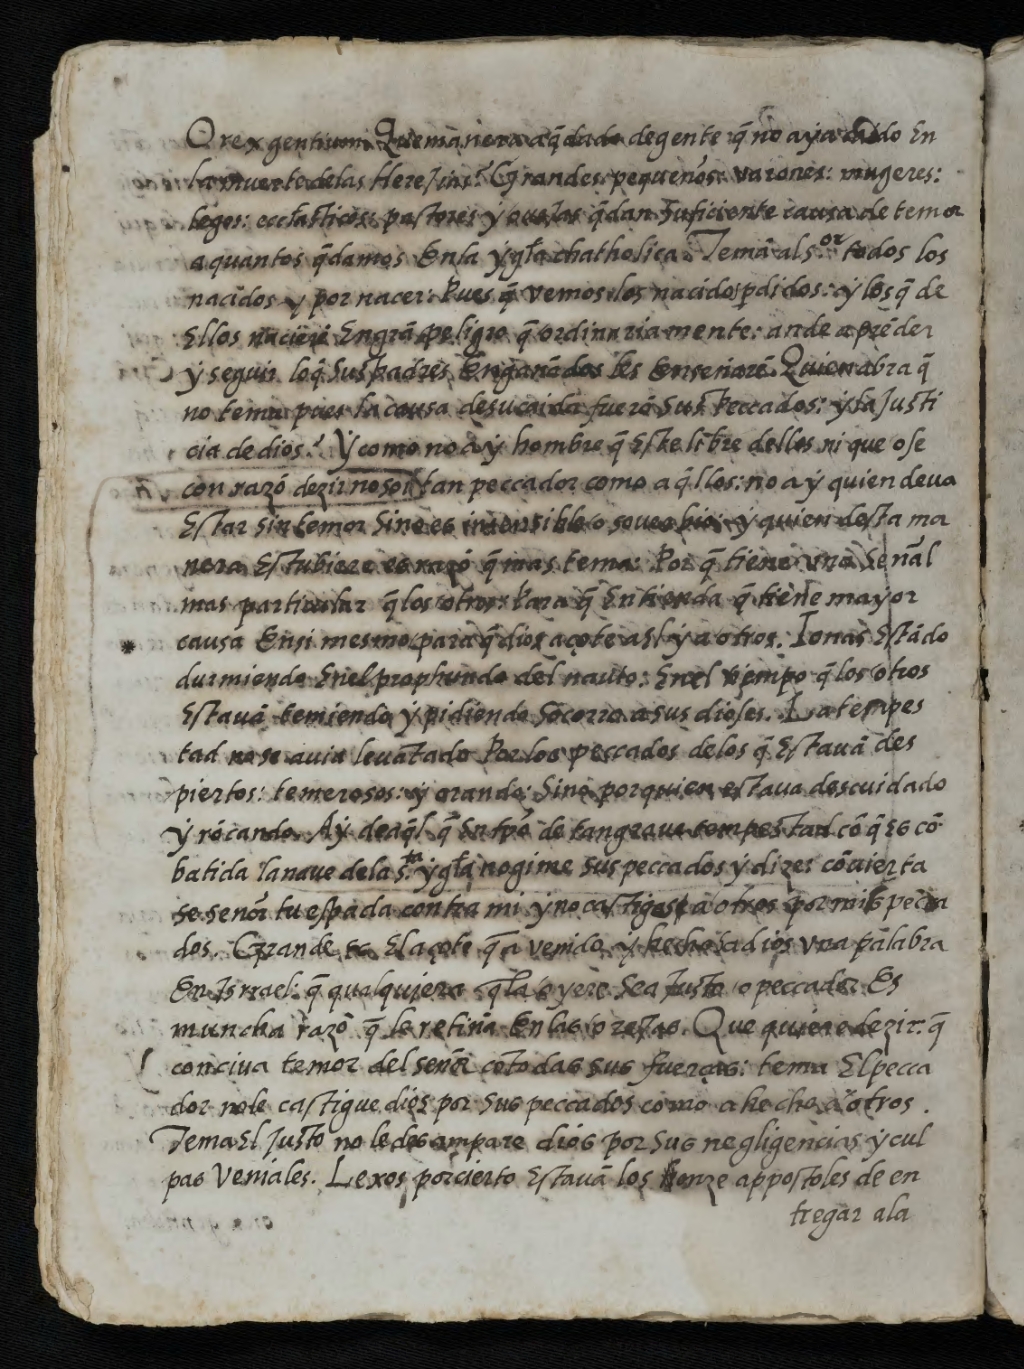 O rex gentium. Que manera a q̃dado de gente q̃ no aya caido En
la muerte delas Herejias? Grandes: pequenos: varones: mugeres:
legos: ecclãsticos: pastores y ouejas q̃dan suficiente causa de temor
a quantos q̃damos En la ygłia chatholica. Temã al s.or todos los
nacidos y por nacer: Pues q̃ vemos los nacidos pdidos: y los q̃ de
Ellos nacierẽ En grã peligro q̃ ordinariamente: an de aprẽder
y seguir loq̃ sus padres Enganãdos les Ensenarẽ. Quien abra q̃
no tema pues la causa de su caida fuerõ sus Peccados: y la Justi
cia de dios? Y como no ay hombre q̃ Este libre dellos ni que ose
con razõ dezir no soi tan peccador como aq̃llos: no ay quien deua
Estar sin temor Sino es insensible o souerbio: y quien desta ma
nera Estubiere es razõ q̃ mas tema: Por q̃ tiene vna Senãl
mas particular q̃ los otros Para q̃ Entienda q̃ tiene mayor
* causa En si mesmo para q̃ dios açote a sí y a otros. Ionas Estãdo
durmiendo En el prophundo del nauio: En el tiempo q̃ los otros
Estauã temiendo y pidiendo socorro a sus dioses. La tempes
tad no se auia leuãtado Por los peccados delos q̃ Estauã des
piertos: temerosos: y orando: Sino por quien estaua descuidado
y rõcando. Ay de aq̃l q̃ En tpõ de tan graue tempestad cõ q̃ es cõ
batida la naue de la s.ta ygłia no gime sus peccados y dize: cõuierta
se senõr tu espada contra mi y no castigues a otros por mis pecca
dos. Grande es El açote q̃ a venido y hecho a dios vna palabra
En Isrrael: q̃ qualquiera q̃ la oyere Sea Justo o peccador Es
muncha razõ q̃ le retiña En las orejas. Que quiere dezir: q̃
conciua temor del senõr cõ todas sus fuerças: tema El pecca
dor no le castigue dios por sus peccados como a hecho a otros.
Tema El Justo no le desampare dios por sus negligencias y cul
pas Veniales. Lexos por cierto Estauã los honze appostoles de en
tregar ala